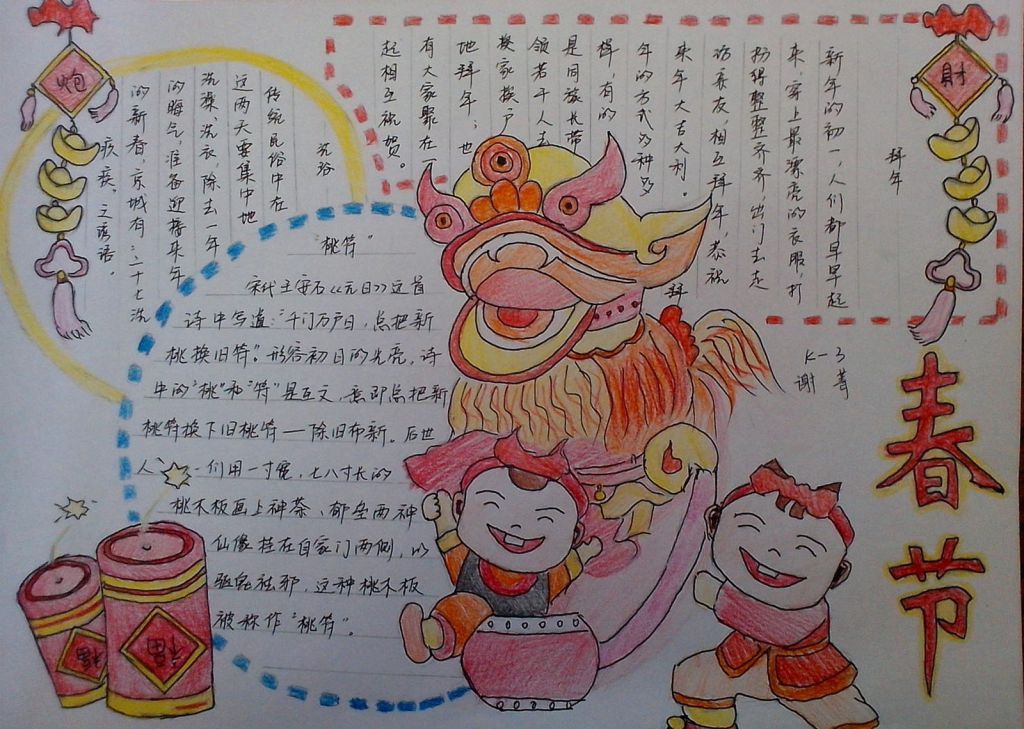 拜年
新年的初一，人们都早早起
来，穿上最漂亮的衣服，打
扮得整整齐齐，出门去走
访亲友，相互拜年，恭祝
来年大吉大利。拜
年的方式多种多
样，有的
是同族长带
领若干人去
挨家挨户
地拜年；也
有大家聚在
起相互祝贺。
洗浴
传统民俗中在
这两天要集中地
洗澡、洗衣，除去一年
的晦气，准备迎接来年
的新春，京城有二十七洗
疚疾、之谚语。
"桃符"
宋代王安石《元日》这首
诗中写道：千门万户日，总把新
桃换旧符"。形容初日的光亮，诗
中的"桃"和"符"是互文，意即总把新
桃符换下旧桃符一除旧布新。后世
人一们用一寸宽，七八寸长的
桃木板画上神荼、郁垒两神
仙像挂在自家门两侧，以
驱鬼祛邪，这种桃木板
被称作"桃符"。
春节
K-3
谢菁
炮
財
福
福